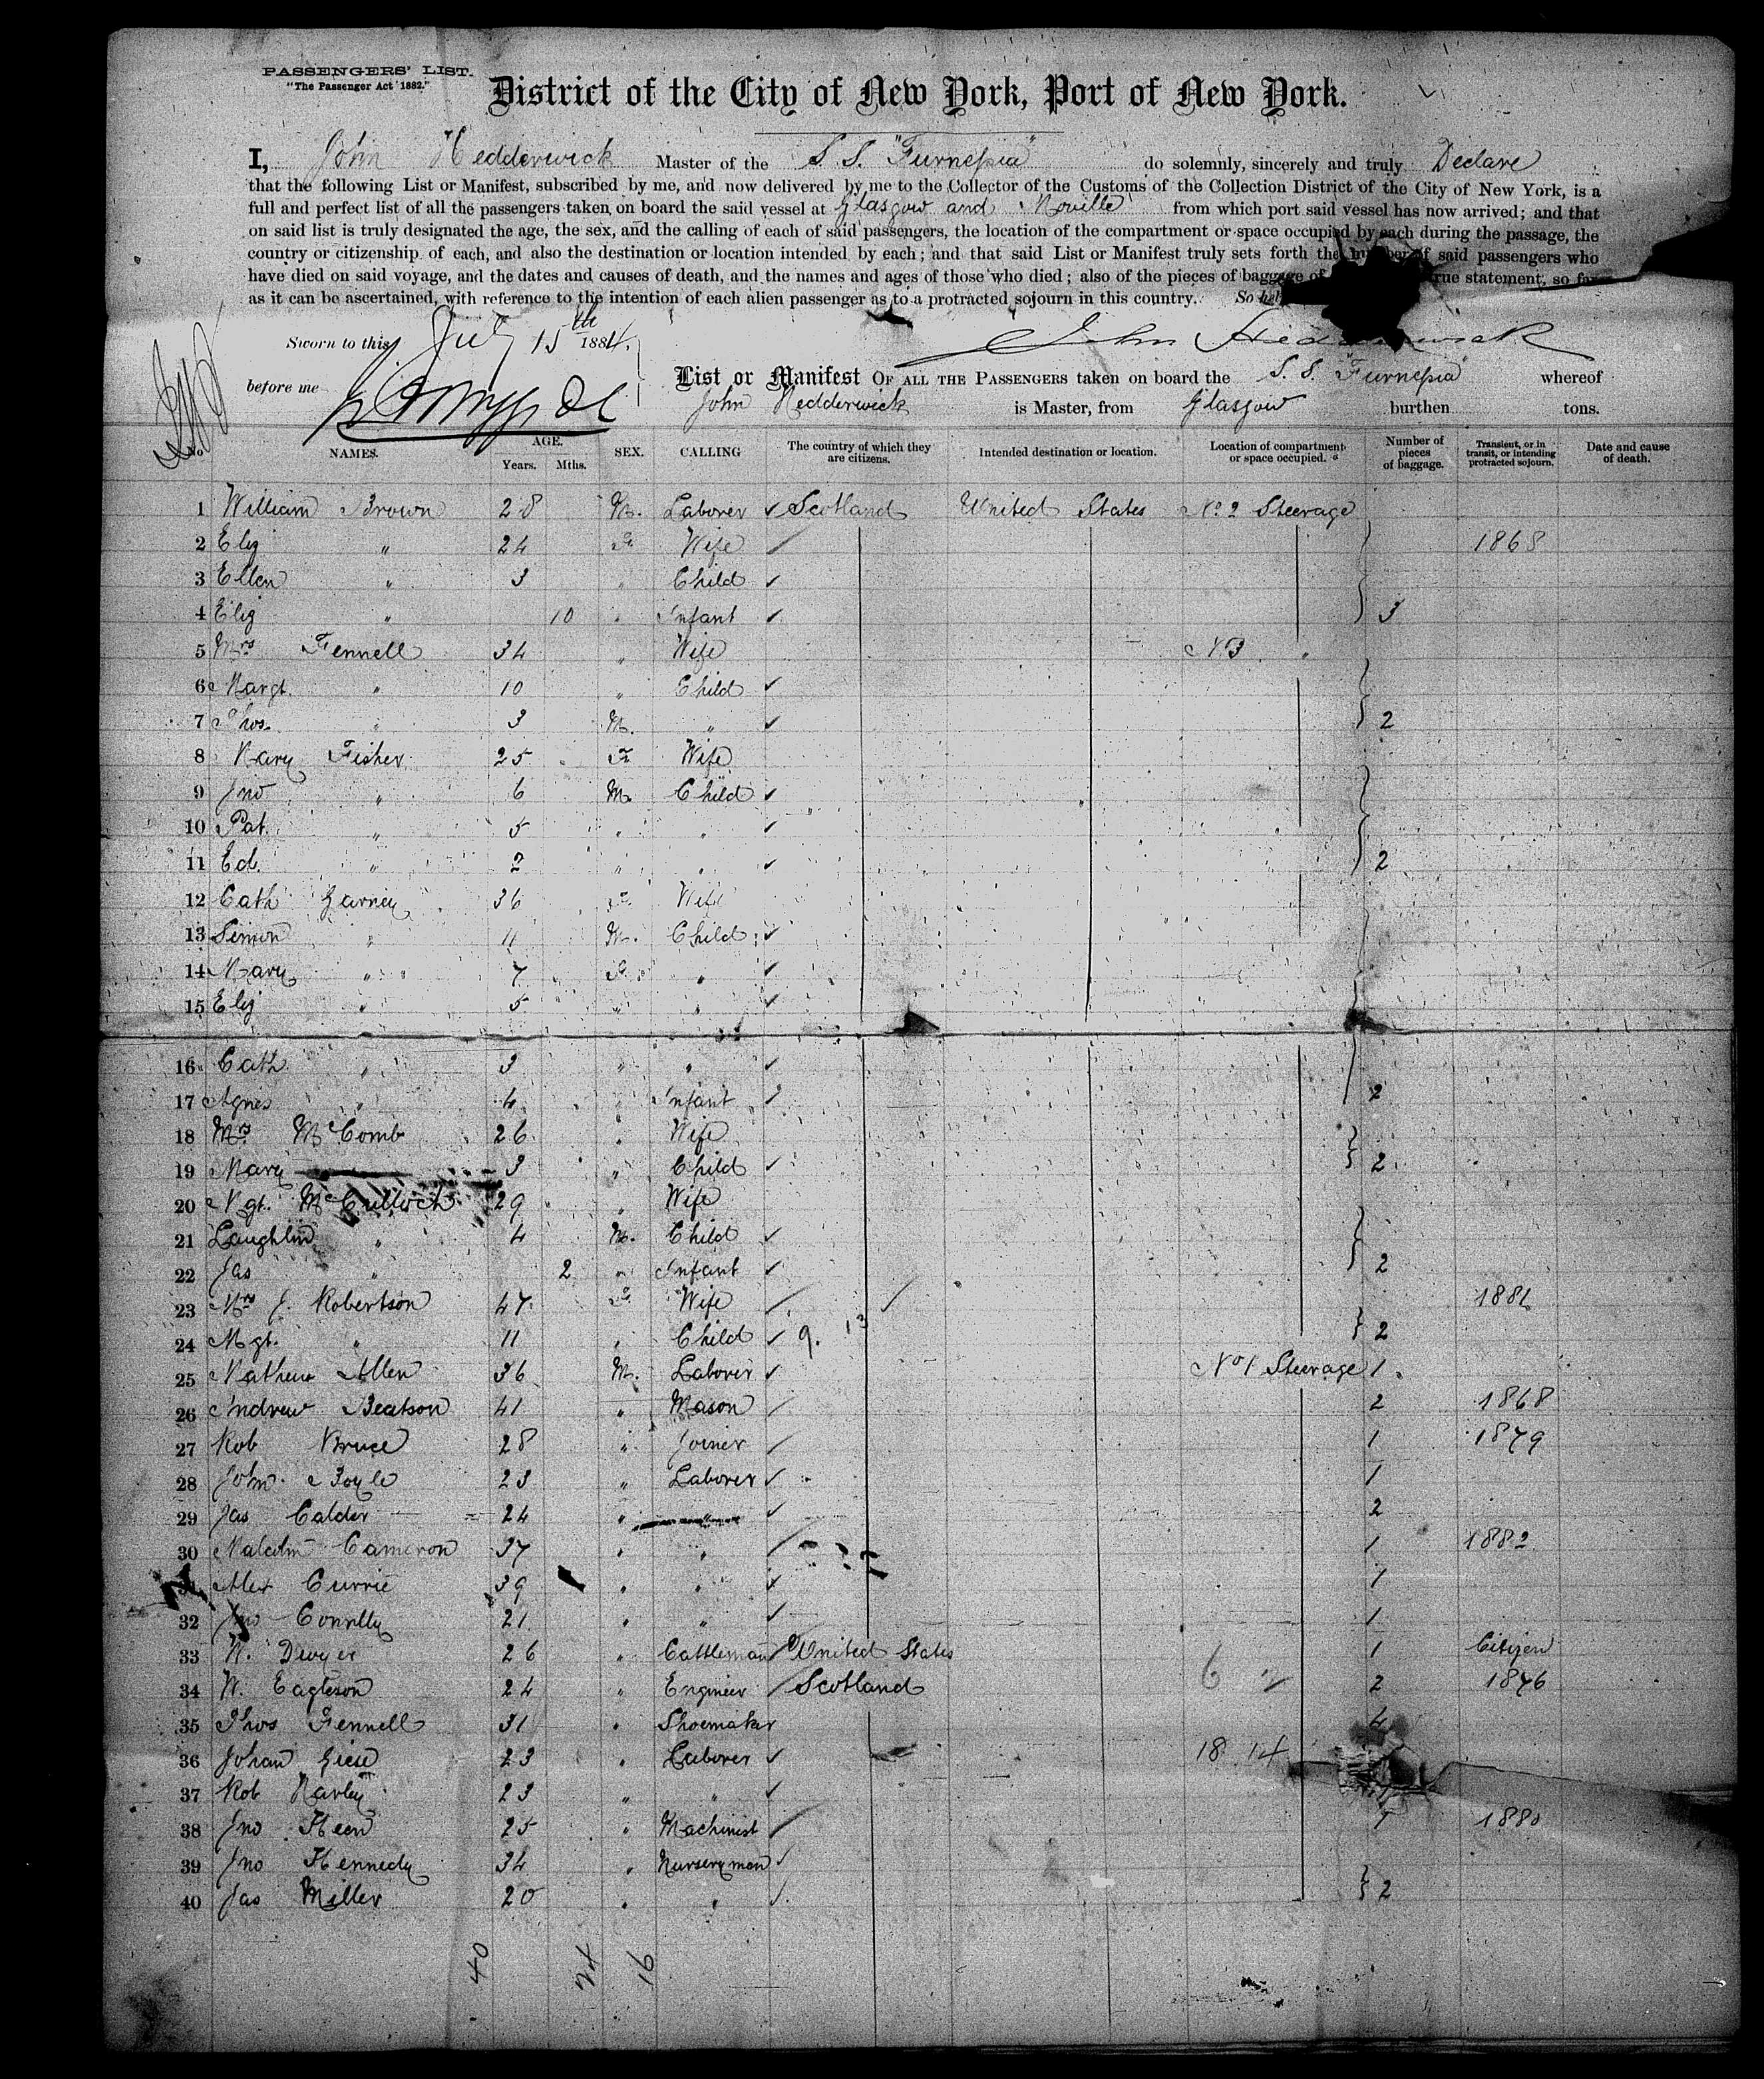 PASSENGERS' LIST.
"The Passenger Act 1882."
District of the City of New York, Port of New York.
I, John Hedderwick Master of the S. S. "Furnessia" do solemnly, sincerely and truly Declare
that the following List or Manifest, subscribed by me, and now delivered by me to the Collector of the Customs of the Collection District of the City of New York, is a
full and perfect list of all the passengers taken on board the said vessel at Glasgow and Moville from which port said vessel has now arrived; and that
on said list is truly designated the age, the sex, and the calling of each of said passengers, the location of the compartment or space occupied by each during the passage, the
country or citizenship of each, and also the destination or location intended by each; and that said List or Manifest truly sets forth the number of said passengers who
have died on said voyage, and the dates and causes of death, and the names and ages of those who died; also of the pieces of baggage of true statement, so far
as it can be ascertained, with reference to the intention of each alien passenger as to a protracted sojourn in this country. So
Sworn to this July 15th 1884. John Hedderwick
before me List or Manifest OF ALL THE PASSENGERS taken on board the S. S. "Furnessia" whereof
John Hedderwick is Master, from Glasgow burthen tons.
No. NAMES. AGE. Years. Mths. SEX. CALLING The country of which they are citizens. Intended destination or location. Location of compartment or space occupied. Number of pieces of baggage. Transient, or in transit, or intending protracted sojourn. Date and cause of death.
1 William Brown 28 M. Laborer ✓ Scotland United States No. 2 Steerage
2 Eliz " 24 F. Wife 1868
3 Ellen " 3 " Child ✓
4 Eliz " 10 " Infant ✓ 3
5 Mrs Fennell 34 " Wife No 3 "
6 Margt. " 10 " Child ✓
7 Thos. " 3 M. " ✓ 2
8 Mary Fisher 25 F. Wife
9 Jno " 6 M. Child ✓
10 Pat. " 5 " " ✓
11 Ed. " 2 " " ✓ 2
12 Cath Garney 36 F. Wife
13 Simon " 11 M. Child ✓
14 Mary " 7 F. " ✓
15 Eliz " 5 " " ✓
16 Cath. " 3 " " ✓
17 Agnes " 4 " Infant ✓ 2
18 Mrs McComb 26 " Wife
19 Mary 3 " Child ✓ 2
20 Mgt. McCulloch 29 " Wife
21 Laughlin " 4 M. Child ✓
22 Jas " 2 " Infant ✓ 2
23 Mrs J. Robertson 47 F. Wife 1881
24 Mgt. " 11 " Child ✓ 9. 13 2
25 Mathew Allen 36 M. Laborer ✓ No 1 Steerage 1
26 Andrew Beatson 41 " Mason 2 1868
27 Rob Bruce 28 " Joiner 1 1879
28 John Boyle 23 " Laborer ✓ 1
29 Jas Calder 24 " " ✓ 2
30 Malcolm Cameron 37 " " 1 1882
31 Alex Currie 39 " " ✓ 1
32 Jno Connelly 21 " " ✓ 1
33 Dwyer 26 " Cattleman United States 1 Citizen
34 W. Eagleson 24 " Engineer Scotland 6 2 1876
35 Thos Fennell 31 " Shoemaker 4
36 Johan Giese 23 " Laborer ✓ 18 14
37 Rob 23 " " ✓
38 Jno Keen 25 " Machinist 1880
39 Jno Kennedy 34 " Nurseryman ✓
40 Jas Miller 20 " " ✓ 2
40 24 16